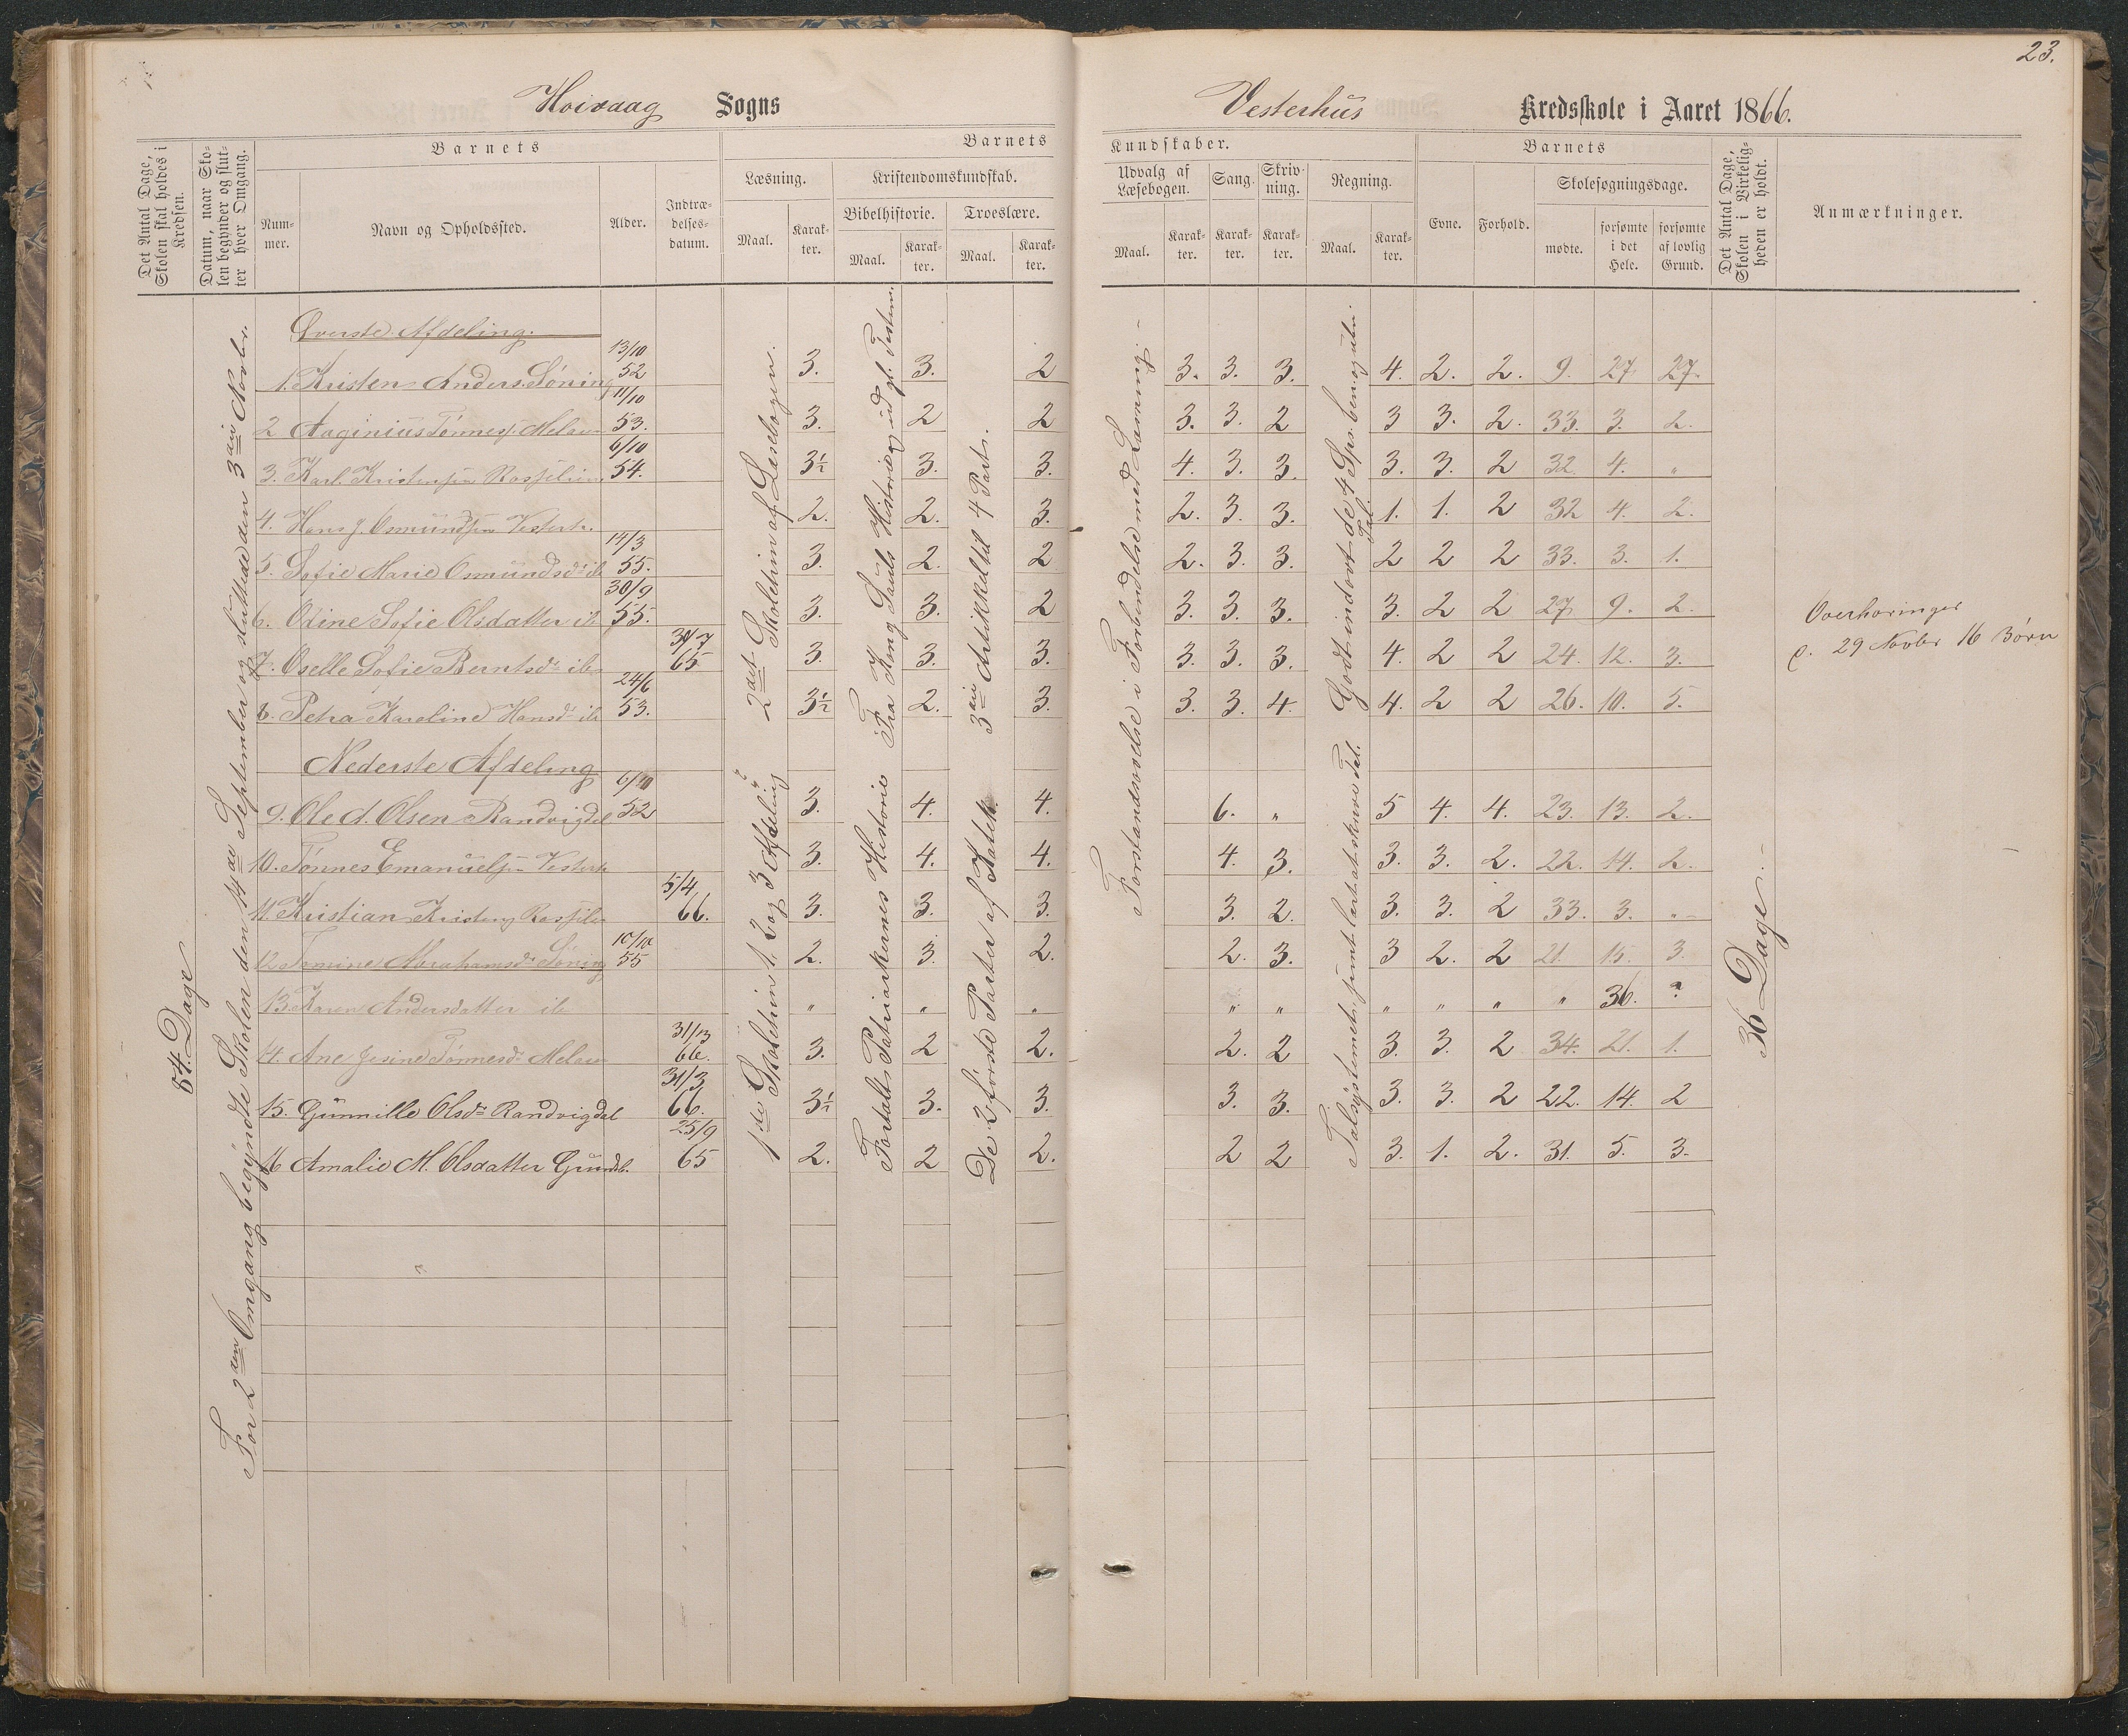 23.
Hoivaag Sogns
Vesterhus Kredsskole i Aaret 1866.
Det Antal Dage, Skolen skal holdes i Kredsen.
Datum, naar Skolen begynder og slutter hver Omgang.
Barnets
Nummer.
Navn og Opholdssted.
Alder.
Indtrædelsesdatum.
Barnets
Kundskaber.
Læsning.
Maal.
Karakter.
Kristendomskundskab.
Bibelhistorie.
Maal.
Karakter.
Troeslære.
Maal.
Karakter.
Udvalg af Læsebogen.
Maal.
Karakter.
Sang.
Karakter.
Skrivning.
Karakter.
Regning.
Maal.
Karakter.
Barnets
Evne.
Forhold.
Skolesøgningsdage.
mødte.
forsømte i det Hele.
forsømte af lovlig Grund.
Det Antal Dage, Skolen i Virkeligheden er holdt.
Anmærkninger.
84. Dage
For 2den Omgang begyndte Skolen den 14de September og sluttede den 3die Novbr.
2det Skoletrin af Læsebogen.
Fra Kong Sauls Historie og ud gl. Testam.
3die Artikkel til 4 Part.
Forstandsøvelse i Forbindelse med Læsning.
Godt indøvet de 4 Spr. ben. og ube. Tal.
1ste Skoletrin 1, 2 og 3 Afdeling
Fortalt Patriarkernes Historie
De 2 første Parter af Katek.
Talsystemet samt lært at skrive Tal.
36 Dage.
Øverste Afdeling.
1. Kristen Anders. Søning 13/10 52 3. 3. 2 3. 3. 3. 4. 2. 2. 9. 27 27.
2 Aaginius Tønness. Melaas 11/10 53. 3. 2 2 3. 3. 2 3 3. 2. 33. 3. 2.
3. Karl Kristensen 6/10 54. 3½ 3. 3. 4. 3. 3. 3. 3. 2 32 4. "
4. Hans J. Osmundsen Vesterh. 2. 2. 3. 2. 3. 3. 1. 1. 2 32 4. 2.
5. Sofie Marie Osmundsd. ib 14/3 55. 3. 2. 2 2. 3. 3. 2 2 2 33. 3. 1.
6. Odine Sofie Olsdatter ib 30/9 55. 3. 3. 2 3. 3. 3. 3. 2 2 27 9. 2.
7. Oselle Sofie Berntsd. ib 31/7 65 3. 3. 3. 3. 3. 3. 4. 2 2 24. 12. 3.
8. Petra Karoline Hansd. ib 24/6 53. 3½ 2. 3. 3. 3. 4. 4. 2 2 26. 10. 5.
Overhøringer
d. 29 Novbr 16 Børn
Nederste Afdeling
9. Ole A. Olsen Randvigdal 52 3. 4. 4. 6. " 5 4. 4. 23. 13. 2.
10. Tønnes Emanuelsen Vesterh 3. 4. 4. 4. 3. 3. 3. 2. 22. 14. 2.
11. Kristian Kristens. 5/4 66. 3. 3. 3. 3. 2. 3. 3. 2 33. 3. "
12 Tomine Abrahamsd. Søning 10/10 55 2. 3. 2. 2. 3. 3 2. 2 21. 15. 3.
13. Karen Andersdatter ib " " " " " " " " " 36. ?
14. Ane Jesine Tønnesd. Melaas 66. 3. 2 2. 2. 2 3. 3. 2 34. 21. 1.
15. Gunnille Olsd. Randvigdal 31/3 66. 3½ 3. 3. 3. 3. 3. 3. 2 22. 14. 2
16 Amalie M. Olsdatter 25/9 65 2. 2 2. 2 2 3. 1. 2. 31. 5. 3.